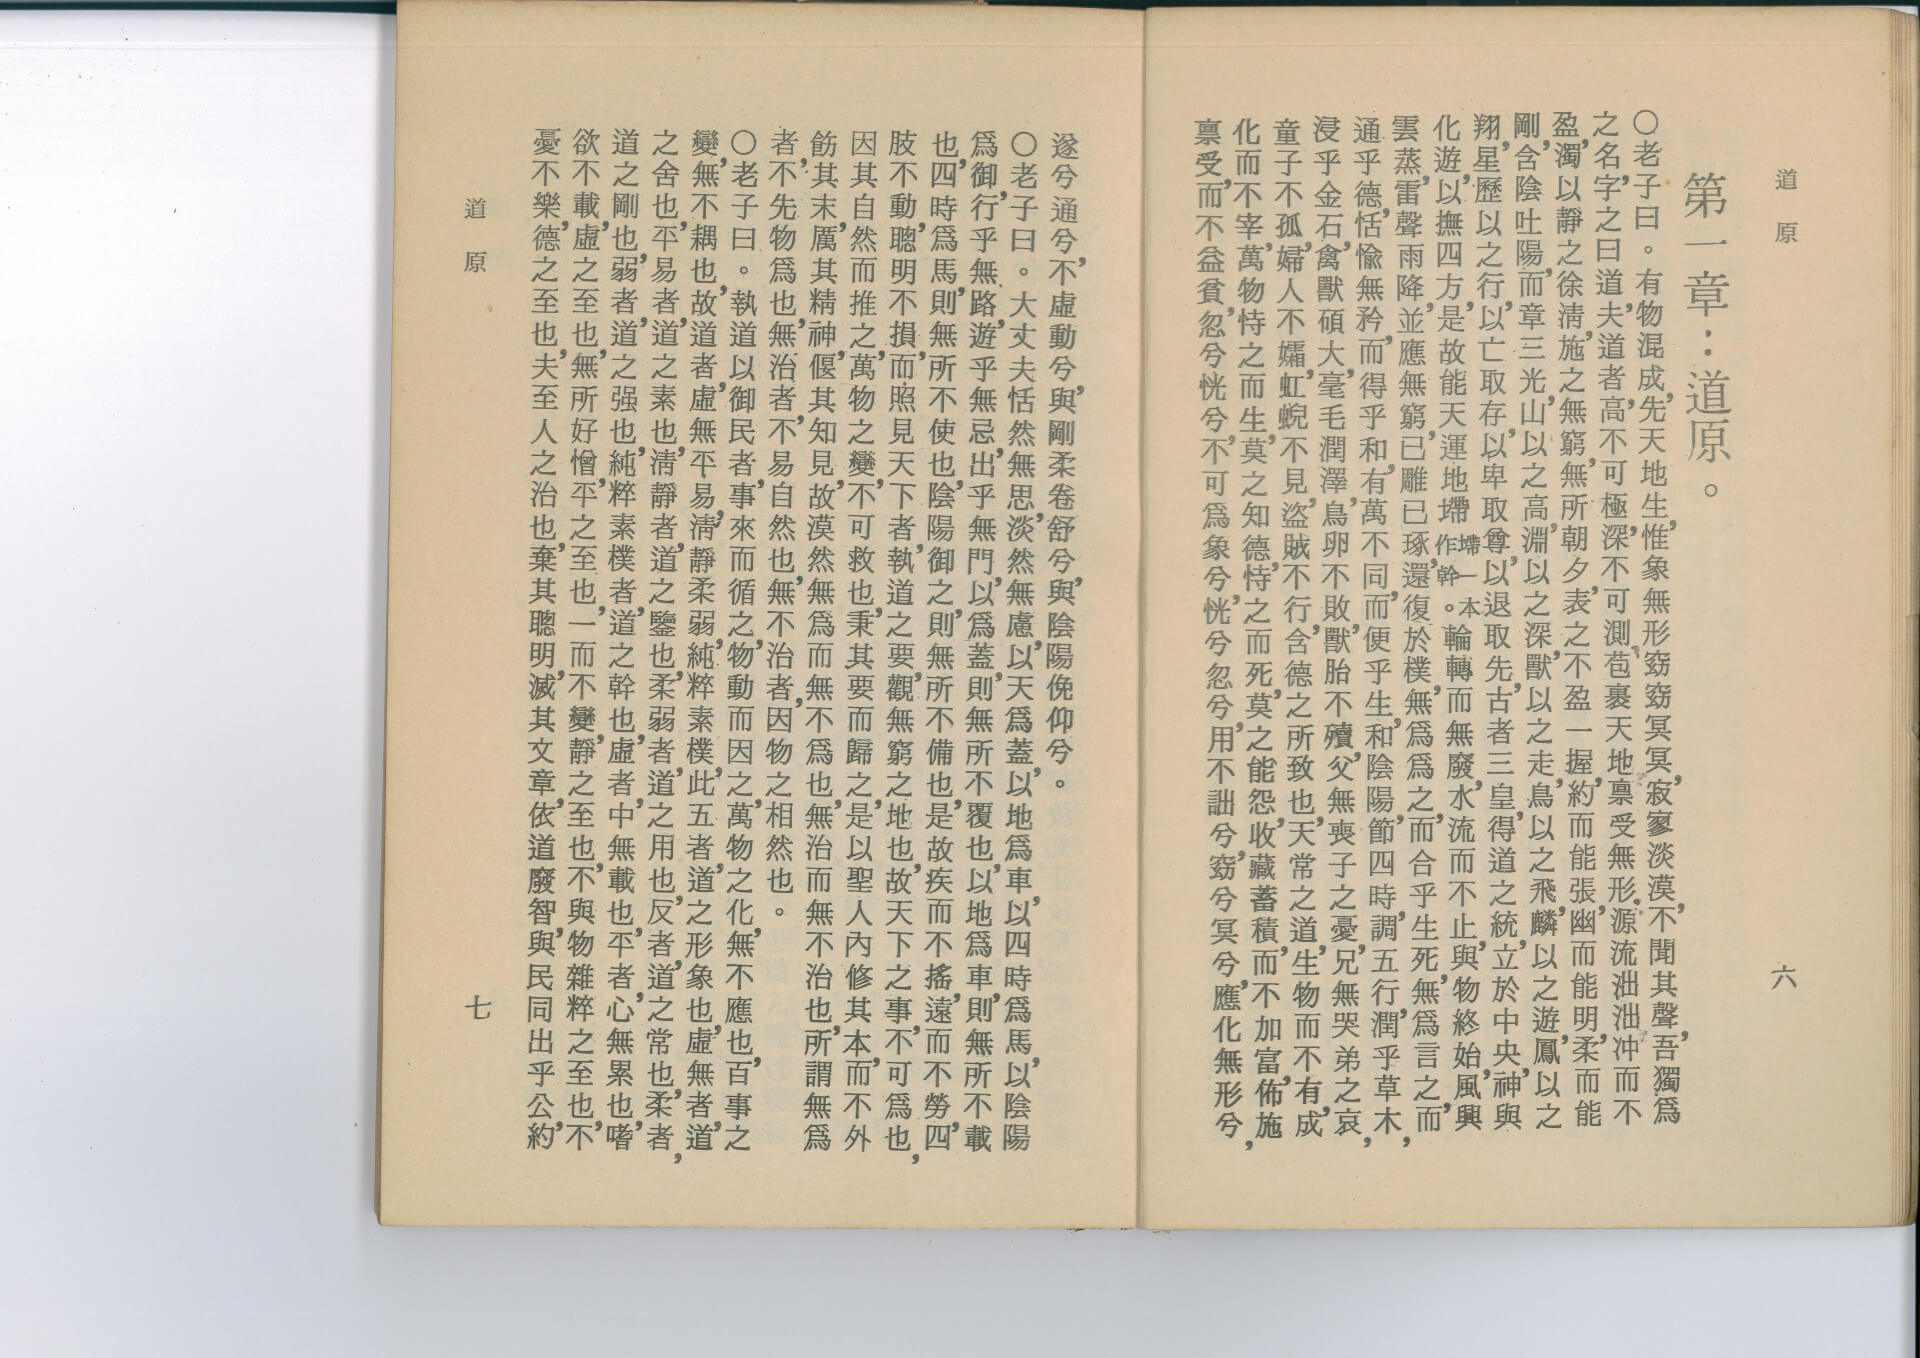 道原
六
第一章：道原。
〇老子曰。有物混成，先天地生，惟象無形，窈窈冥冥，寂寥淡漠，不聞其聲，吾獨爲
之名，字之曰道，夫道者，高不可極，深不可測，苞裹天地，禀受無形，源流泏泏，沖而不
盈，濁以靜之徐淸，施之無窮，無所朝夕，表之不盈一握，約而能張，幽而能明，柔而能
剛，含陰吐陽，而章三光，山以之高，淵以之深，獸以之走，鳥以之飛，麟以之遊，鳳以之
翔，星歷以之行，以亡取存，以卑取尊，以退取先，古者三皇，得道之統，立於中央，神與
化遊，以撫四方，是故能天運地墆墆一本作幹。輪轉而無廢，水流而不止，與物終始，風興
雲蒸，雷聲雨降，並應無窮，已雕已琢，還復於樸，無爲爲之，而合乎生死，無爲言之，而
通乎德，恬愉無矜，而得乎和，有萬不同，而便乎生，和陰陽，節四時，調五行，潤乎草木，
浸乎金石，禽獸碩大，毫毛潤澤，鳥卵不敗，獸胎不殰，父無喪子之憂，兄無哭弟之哀，
童子不孤，婦人不孀，虹蜺不見，盜賊不行，含德之所致也，天常之道，生物而不有，成
化而不宰，萬物恃之而生，莫之知德，恃之而死，莫之能怨，收藏蓄積，而不加富，佈施
禀受，而不益貧，忽兮恍兮，不可爲象兮，恍兮忽兮，用不詘兮，窈兮冥兮，應化無形兮，
遂兮通兮，不虛動兮，與剛柔卷舒兮，與陰陽俛仰兮。
〇老子曰。大丈夫恬然無思，淡然無慮，以天爲蓋，以地爲車，以四時爲馬，以陰陽
爲御，行乎無路，遊乎無忌，出乎無門，以爲蓋，則無所不覆也，以地爲車，則無所不載
也，四時爲馬，則無所不使也，陰陽御之，則無所不備也，是故疾而不搖，遠而不勞，四
肢不動，聰明不損，而照見天下者，執道之要，觀無窮之地也，故天下之事，不可爲也，
因其自然而推之，萬物之變，不可救也，秉其要而歸之，是以聖人內修其本，而不外
飭其末，厲其精神，偃其知見，故漠然無爲而無不爲也，無治而無不治也，所謂無爲
者，不先物爲也，無治者，不易自然也，無不治者，因物之相然也。
〇老子曰。執道以御民者，事來而循之，物動而因之，萬物之化，無不應也，百事之
變，無不耦也，故道者，虛無平易，淸靜柔弱，純粹素樸，此五者，道之形象也，虛無者，道
之舍也，平易者，道之素也，淸靜者，道之鑒也，柔弱者，道之用也，反者，道之常也，柔者，
道之剛也，弱者，道之强也，純粹素樸者，道之幹也，虛者，中無載也，平者，心無累也，嗜
欲不載，虛之至也，無所好憎，平之至也，一而不變，靜之至也，不與物雜，粹之至也，不
憂不樂，德之至也，夫至人之治也，棄其聰明，滅其文章，依道廢智，與民同出乎公，約
道原
七